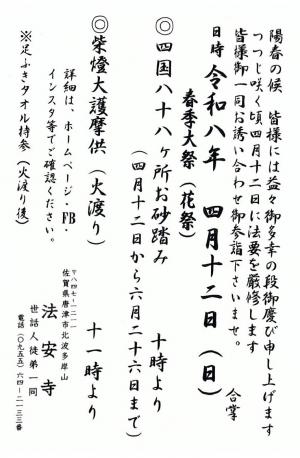 陽春の候　皆様には益々御多幸の段御慶び申し上げます
つつじ咲く頃四月十二日に法要を厳修します
皆様御一同お誘い合わせ御参詣下さいませ。
合掌
日時　令和八年　四月十二日（日）
春季大祭（花祭）
◎四国八十八ヶ所お砂踏み　十時より
（四月十二日から六月二十六日まで）
◎柴燈大護摩供（火渡り）　十一時より
詳細は、ホームページ・FB・
インスタ等でご確認ください。
※足ふきタオル持参（火渡り後）
〒八四七－一二一一
佐賀県唐津市北波多岸山
法安寺
世話人徒弟一同
電話（〇九五五）六四－二一三三番